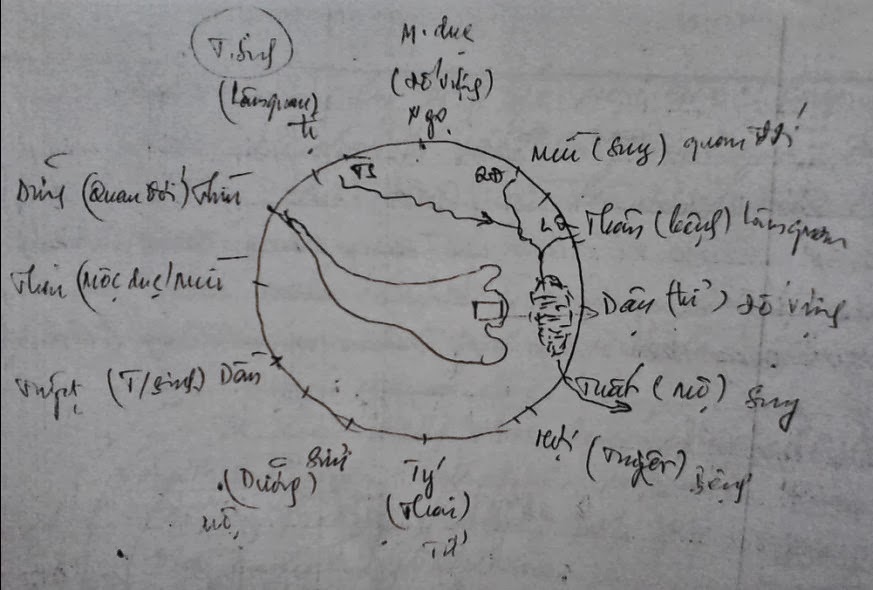 T.Sinh
(Lâm quan)
Tị
M. dục
(đế vượng)
Ngọ
Mùi (Suy) quan đới
TS
QĐ
Dưỡng (Quan đới) Thìn
LQ
Thân (bệnh) Lâm quan
Thai (Mộc dục)
Dậu (tử) đế vượng
Tuyệt (T/sinh) Dần
Tuất (mộ) Suy
Hợi (tuyệt) Bệnh
Sửu
(Dưỡng)
mộ
Tý
(Thai)
Tử